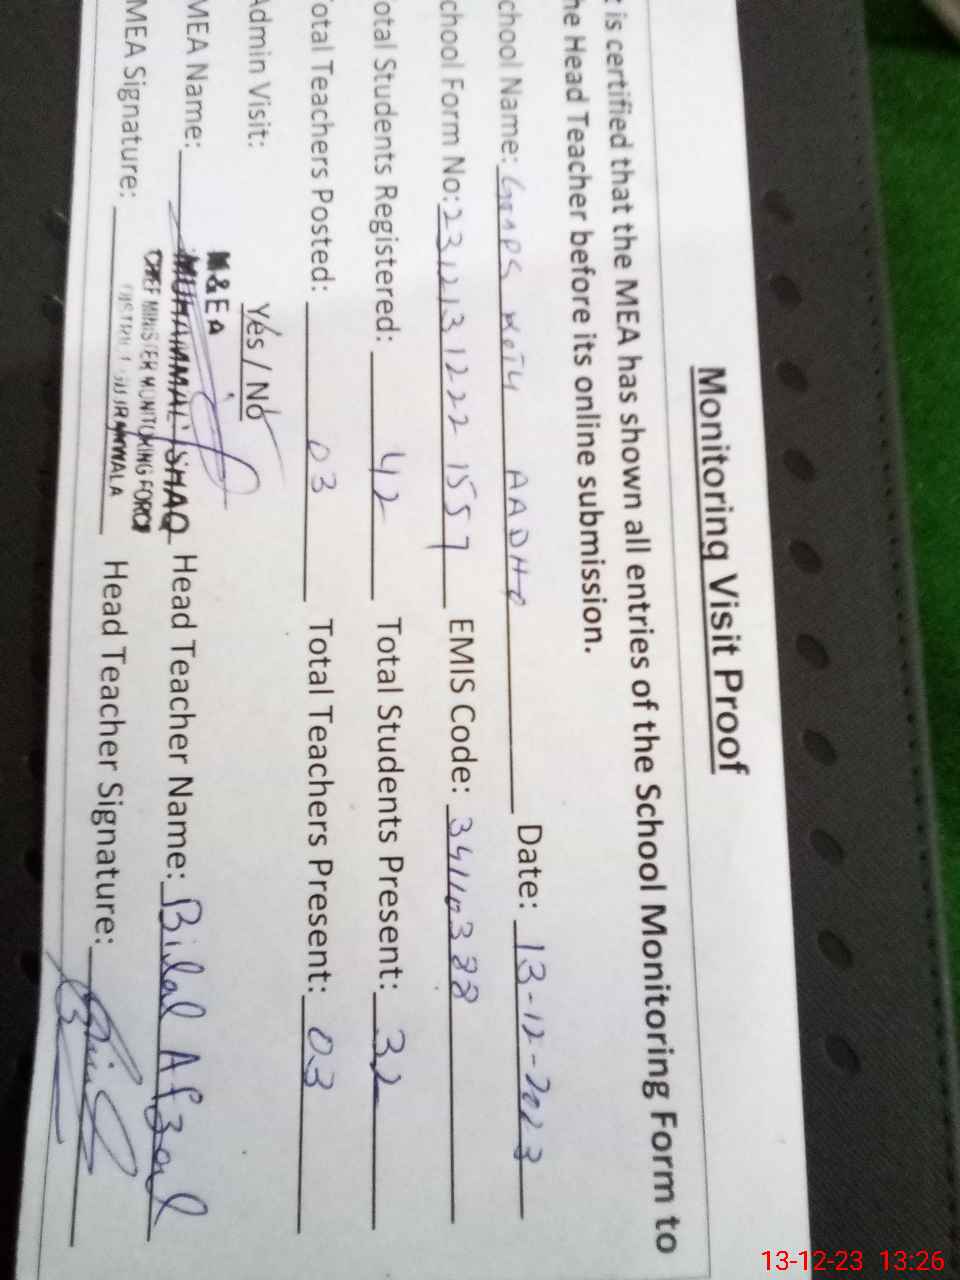 Monitoring Visit Proof
t is certified that the MEA has shown all entries of the School Monitoring Form to
he Head Teacher before its online submission.
chool Name: GMPS KOT4 AADHO Date: 13-12-2023
chool Form No: 231213122 2 1557 EMIS Code: 34110388
otal Students Registered: 42 Total Students Present: 32
otal Teachers Posted: 03 Total Teachers Present: 03
Admin Visit: Yes / No
M&EA
MEA Name: MUHAMMAD SHAQ Head Teacher Name: Bilal Afzal
CHIEF MINISTER MONITORING FORCE
MEA Signature: Head Teacher Signature:
13-12-23 13:26